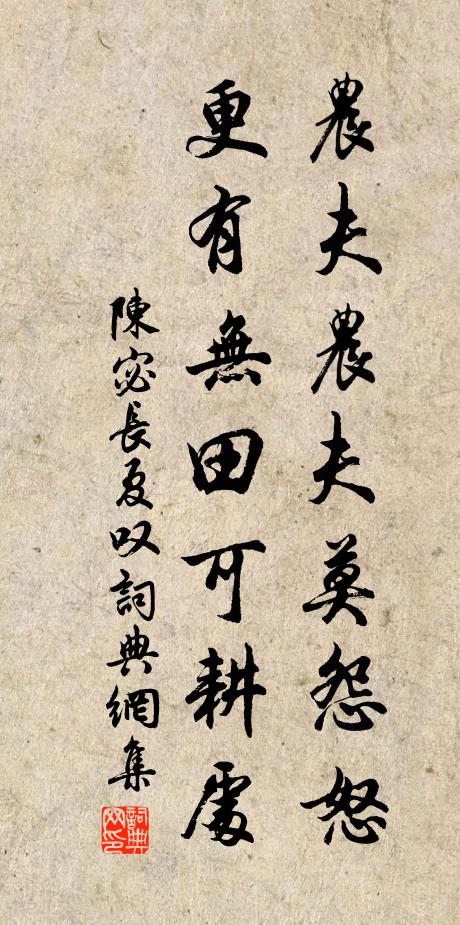 農夫農夫莫怨怒
更有無田可耕處
陳宓長夏叹詞典網集
詞典网印